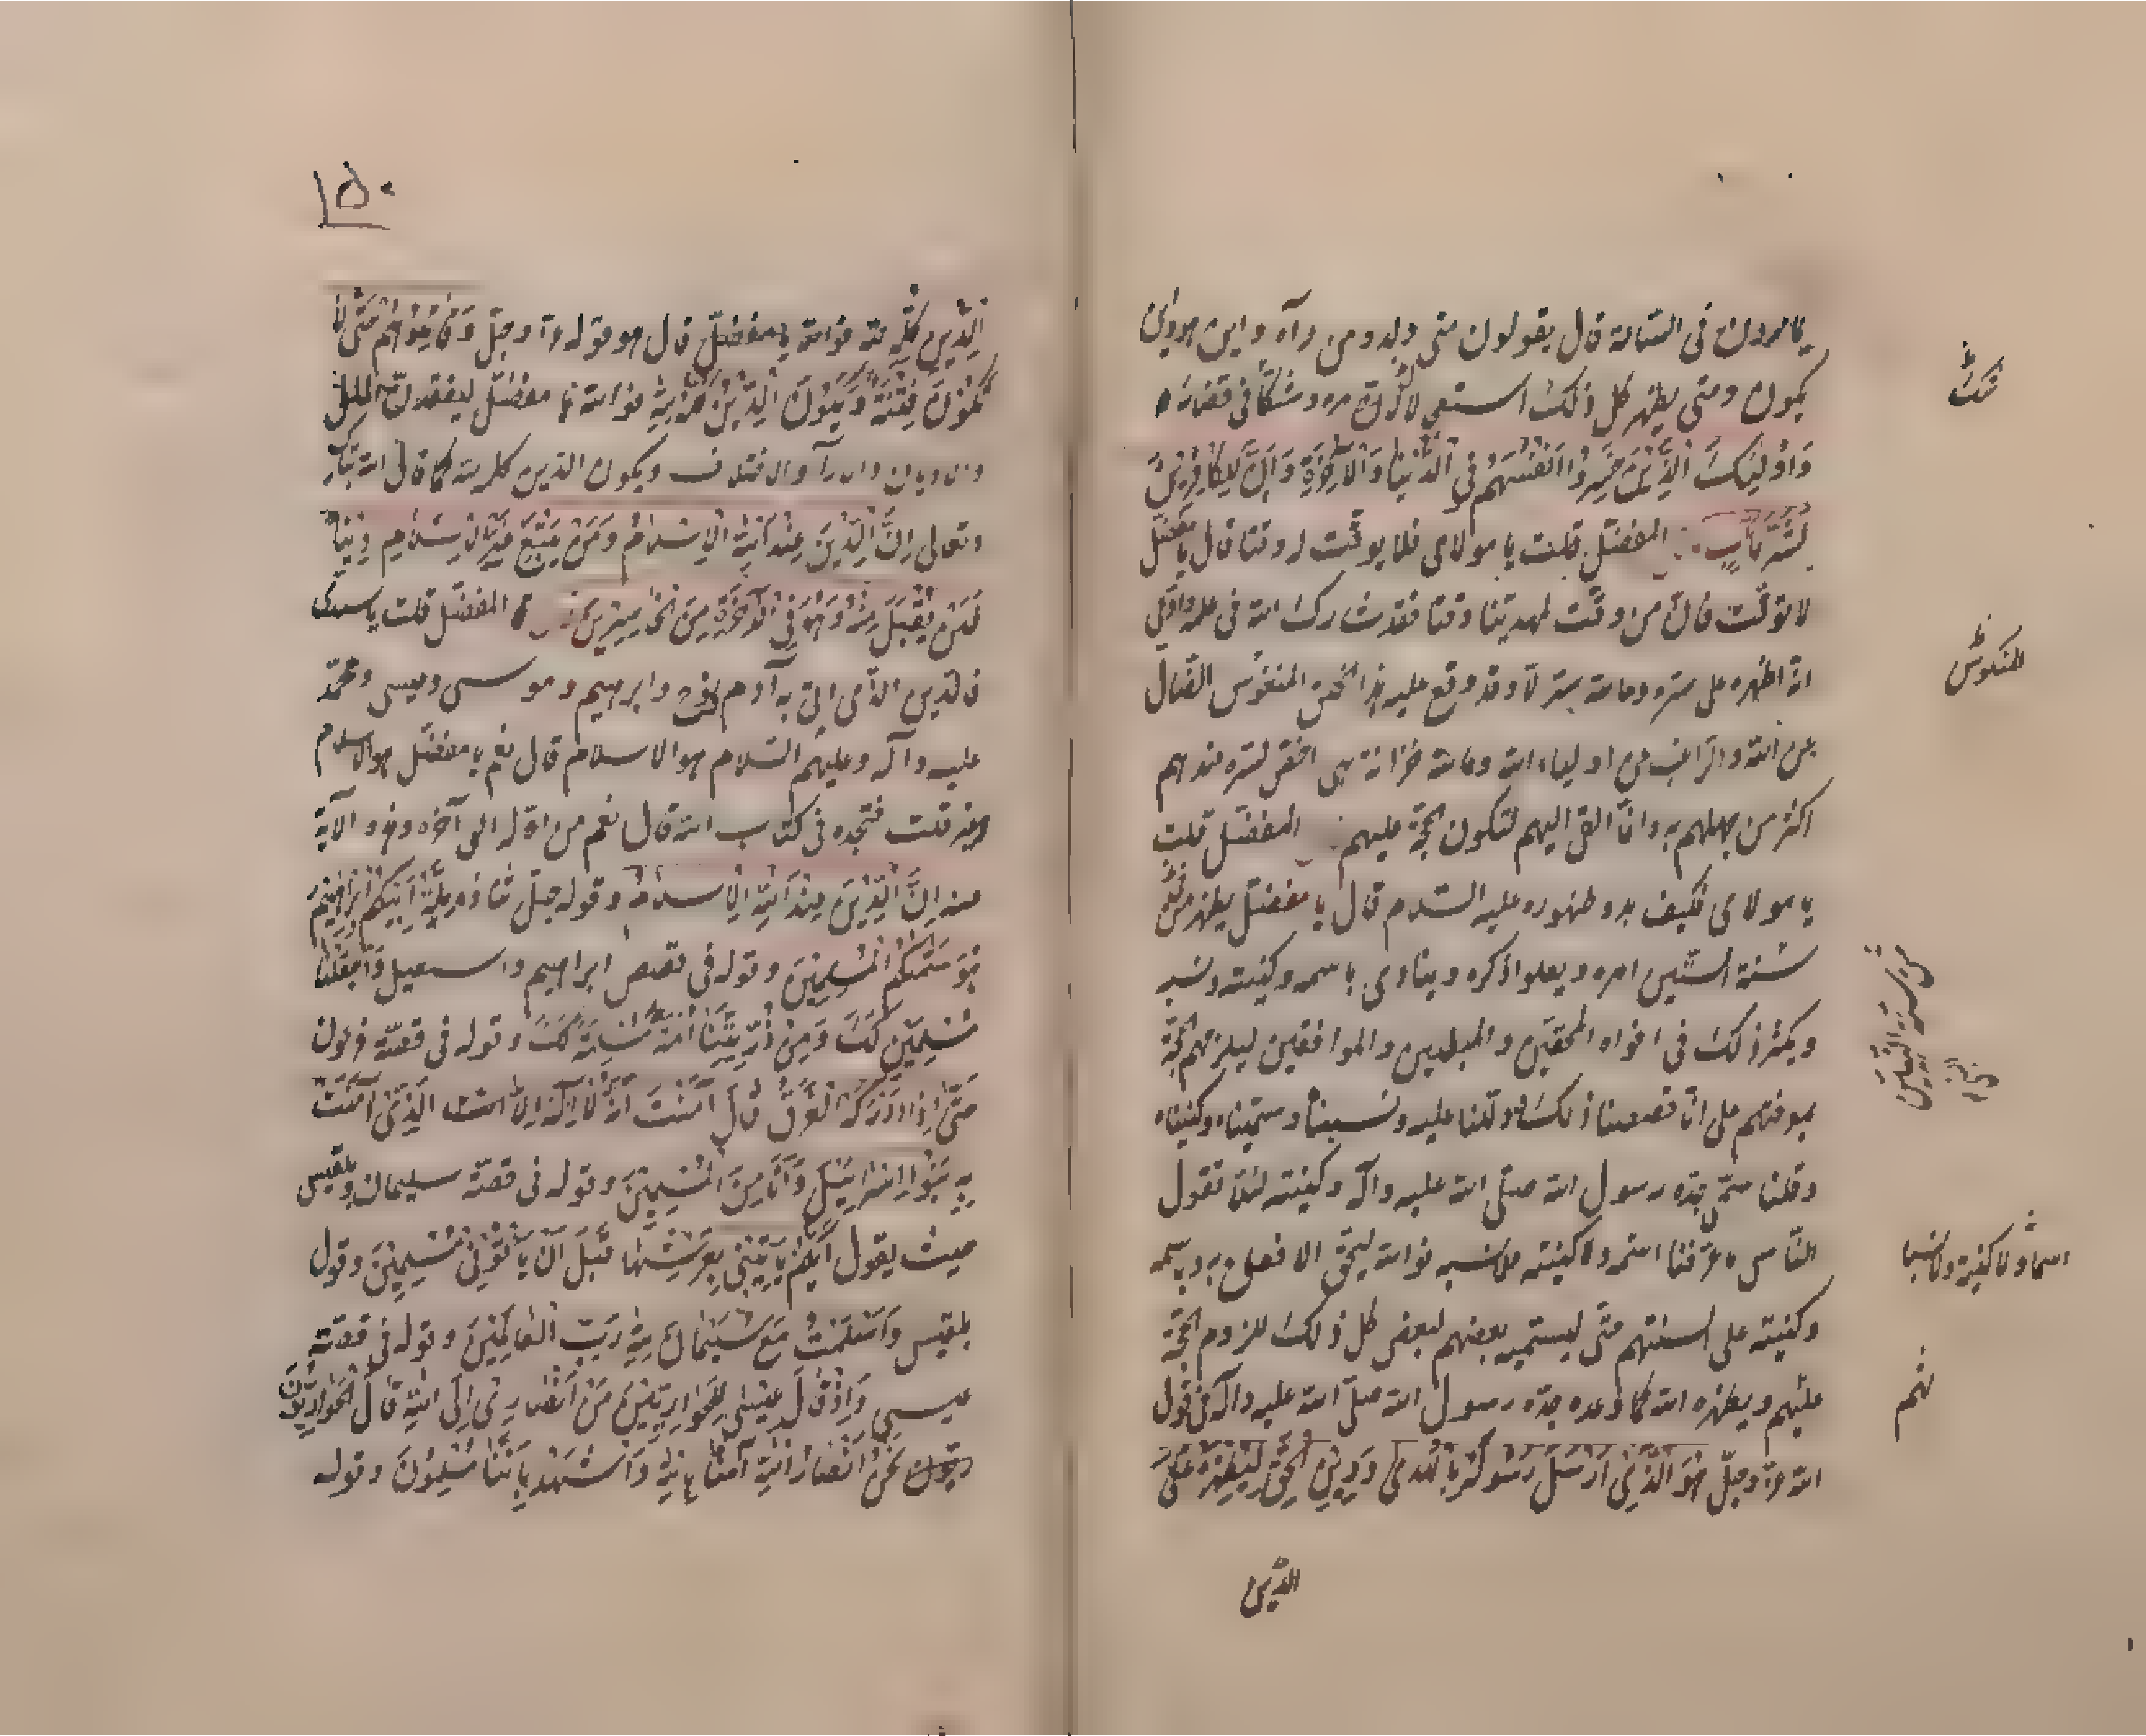 يمارون في الساعة قال يقولون متى ولد ومن رآه واين هو واين
يكون ومتى يظهر كل ذلك استعجالا لامره وشكا في قضائه
وَاُولٰئِكَ الَّذِينَ خَسِرُوا اَنْفُسَهُمْ فِي الدُّنْيَا وَالْآخِرَةِ وَاِنَّ لِلْكَافِرِينَ
لَشَرَّ مَآبٍ المفضّل قلت يا مولاى فلا يوقّت له وقتا قال يا مفضّل
لا توقّت فان من وقّت لمهديّنا وقتا فقد شارك الله في علمه وادّعى
انه اظهره على سرّه وما لله سرّ الا وقد وقع عليه هذا الخلق المنقوس الضّال
عن الله والراغب عن اولياء الله وما لله خزانة هي اخصّ لسرّه عندهم
اكثر من جهلهم به وانّما القى اليهم لتكون حجّة عليهم المفضّل قلت
يا مولاى فكيف بدو ظهوره عليه السّلام قال يا مفضّل يظهر في
سنة الستّين امره ويعلو اذكره وينادى باسمه وكنيته ونسبه
ويكثر ذلك في افواه المحقّين والمبطلين والموافقين ليلزمهم الحجّة
بمعرفتهم على انّا قصصنا ذلك ودللنا عليه ونسبناه وسمّيناه وكنيناه
وقلنا سمّي جدّه رسول الله صلّى الله عليه وآله وكنيته لئلّا تقول
النّاس ما عرفنا اسمه ولا كنيته ولا نسبه فوالله ليحقّ الا فصاح به وباسمه
وكنيته على السنتهم حتّى ليسمّيه بعضهم لبعض كل ذلك للزوم الحجّة
عليهم ويظهره الله كما وعده جدّه رسول الله صلّى الله عليه وآله في قول
الله عزّ وجلّ هُوَ الَّذِي اَرْسَلَ رَسُولَهُ بِالْهُدىٰ وَدِينِ الْحَقِّ لِيُظْهِرَهُ عَلَى
الدّين
شكّ
المنكوس
في سنة الستّين
اسما ولا كنية ولا نسبا
نهم
١٥٠
الدِّينِ كُلِّهِ قال هو قوله عزّ وجلّ وَقَاتِلُوهُمْ حَتّٰى لَا
تَكُونَ فِتْنَةٌ وَيَكُونَ الدِّينُ كُلُّهُ لِلّٰهِ فوالله يا مفضّل ليفقدنّ الملل
والاديان والآرآ والاختلاف ويكون الدين كله لله كما قال الله تبارك
وتعالى اِنَّ الدِّينَ عِنْدَ اللّٰهِ الْاِسْلَامُ وَمَنْ يَبْتَغِ غَيْرَ الْاِسْلَامِ دِينًا
فَلَنْ يُقْبَلَ مِنْهُ وَهُوَ فِي الْآخِرَةِ مِنَ الْخَاسِرِينَ المفضّل قلت يا سيدى
فالدين الذّى اتى به آدم ونوح وابرهيم وموسى وعيسى ومحمّد
عليه وآله وعليهم السّلام هو الاسلام قال نعم يا مفضّل هو الاسلام
قلت فتجده في كتاب الله قال نعم من اوّله الى آخره وهذه الآية
منه اِنَّ الدِّينَ عِنْدَ اللّٰهِ الْاِسْلَامُ وقوله جلّ ثناؤه مِلَّةَ اَبِيكُمْ اِبْرَاهِيمَ
هُوَ سَمّٰكُمُ الْمُسْلِمِينَ وقوله في قصص ابراهيم واسمعيل وَاجْعَلْنَا
مُسْلِمَيْنِ لَكَ وَمِنْ ذُرِّيَّتِنَا اُمَّةً مُسْلِمَةً لَكَ وقوله في قصّة فرعون
حَتّٰى اِذَا اَدْرَكَهُ الْغَرَقُ قَالَ آمَنْتُ اَنَّهُ لَا اِلٰهَ اِلَّا الَّذِي آمَنَتْ
بِهِ بَنُوا اِسْرَائِيلَ وَاَنَا مِنَ الْمُسْلِمِينَ وقوله في قصّة سليمان وبلقيس
حيث يقول اَيُّكُمْ يَأْتِينِي بِعَرْشِهَا قَبْلَ اَنْ يَأْتُونِي مُسْلِمِينَ وقول
بلقيس وَاَسْلَمْتُ مَعَ سُلَيْمَانَ لِلّٰهِ رَبِّ الْعَالَمِينَ وقوله في قصّة
عيسى وَاِذْ قَالَ عِيسٰى لِلْحَوَارِيِّينَ مَنْ اَنْصَارِي اِلَى اللّٰهِ قَالَ الْحَوَارِيُّونَ
نَحْنُ اَنْصَارُ اللّٰهِ آمَنَّا بِاللّٰهِ وَاشْهَدْ بِاَنَّا مُسْلِمُونَ وقوله